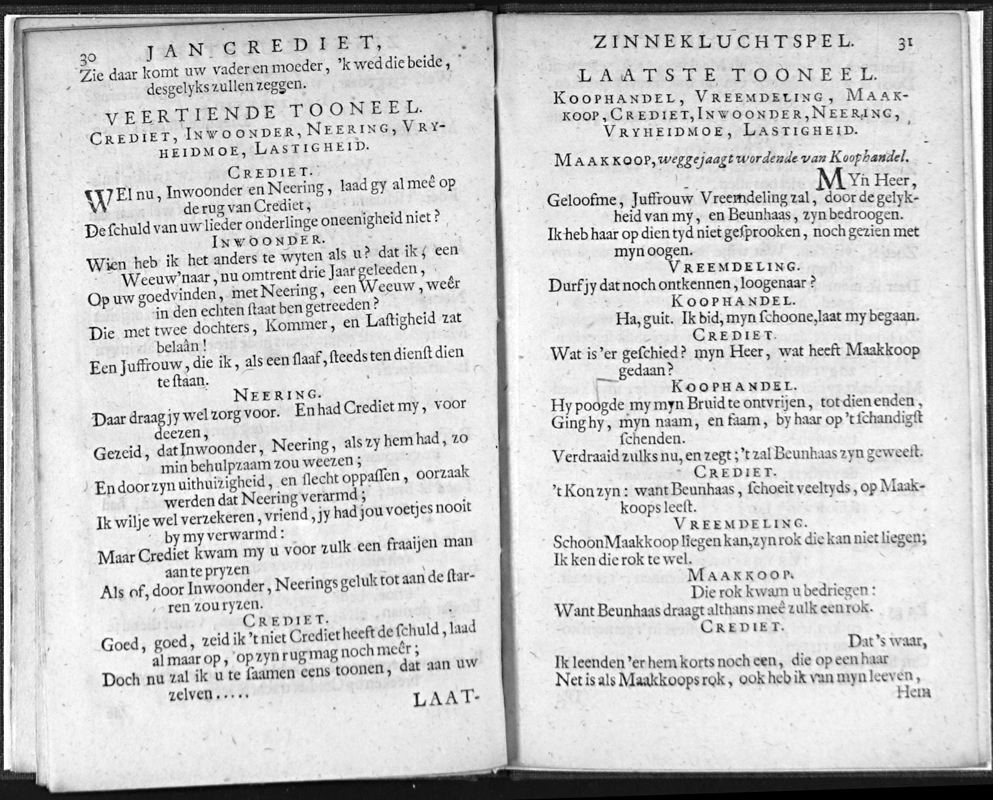 30 JAN CREDIET,
Zie daar komt uw vader en moeder, 'k wed die beide,
desgelyks zullen zeggen.
VEERTIENDE TOONEEL.
CREDIET, INWOONDER, NEERING, VRY-
HEIDMOE, LASTIGHEID.
CREDIET.
WEl nu, Inwoonder en Neering, laad gy al meê op
de rug van Crediet,
De ſchuld van uw lieder onderlinge oneenigheid niet?
INWOONDER.
Wien heb ik het anders te wyten als u? dat ik, een
Weeuw'naar, nu omtrent drie Jaar geleeden,
Op uw goedvinden, met Neering, een Weeuw, weêr
in den echten ſtaat ben getreeden?
Die met twee dochters, Kommer, en Laſtigheid zat
belaân!
Een Juffrouw, die ik, als een ſlaaf, ſteeds ten dienſt dien
te ſtaan.
NEERING.
Daar draag jy wel zorg voor. En had Crediet my, voor
deezen,
Gezeid, dat Inwoonder, Neering, als zy hem had, zo
min behulpzaam zou weezen;
En door zyn uithuizigheid, en ſlecht oppaſſen, oorzaak
werden dat Neering verarmd;
Ik wil je wel verzekeren, vriend, jy had jou voetjes nooit
by my verwarmd:
Maar Crediet kwam my u voor zulk een fraaijen man
aan te pryzen
Als of, door Inwoonder, Neerings geluk tot aan de ſtar-
ren zou ryzen.
CREDIET.
Goed, goed, zeid ik 't niet Crediet heeft de ſchuld, laad
al maar op, op zyn rug mag noch meêr;
Doch nu zal ik u te ſaamen eens toonen, dat aan uw
zelven.....
LAAT-
ZINNEKLUCHTSPEL. 31
LAATSTE TOONEEL.
KOOPHANDEL, VREEMDELING, MAAK-
KOOP, CREDIET, INWOONDER, NEERING,
VRYHEIDMOE, LASTIGHEID.
MAAKKOOP, weggejaagt wordende van Koophandel.
MYn Heer,
Geloofme, Juffrouw Vreemdeling zal, door de gelyk-
heid van my, en Beunhaas, zyn bedroogen.
Ik heb haar op dien tyd niet geſprooken, noch gezien met
myn oogen.
VREEMDELING.
Durf jy dat noch ontkennen, loogenaar?
KOOPHANDEL.
Ha, guit. Ik bid, myn ſchoone, laat my begaan.
CREDIET.
Wat is 'er geſchied? myn Heer, wat heeft Maakkoop
gedaan?
KOOPHANDEL.
Hy poogde my myn Bruid te ontvrijen, tot dien enden,
Ging hy, myn naam, en faam, by haar op 't ſchandigſt
ſchenden.
Verdraaid zulks nu, en zegt; 't zal Beunhaas zyn geweeſt.
CREDIET.
't Kon zyn: want Beunhaas, ſchoeit veeltyds, op Maak-
koops leeſt.
VREEMDELING.
Schoon Maakkoop liegen kan, zyn rok die kan niet liegen;
Ik ken die rok te wel.
MAAKKOOP.
Die rok kwam u bedriegen:
Want Beunhaas draagt althans meê zulk een rok.
CREDIET.
Dat's waar,
Ik leenden 'er hem korts noch een, die op een haar
Net is als Maakkoops rok, ook heb ik van myn leeven,
Hem